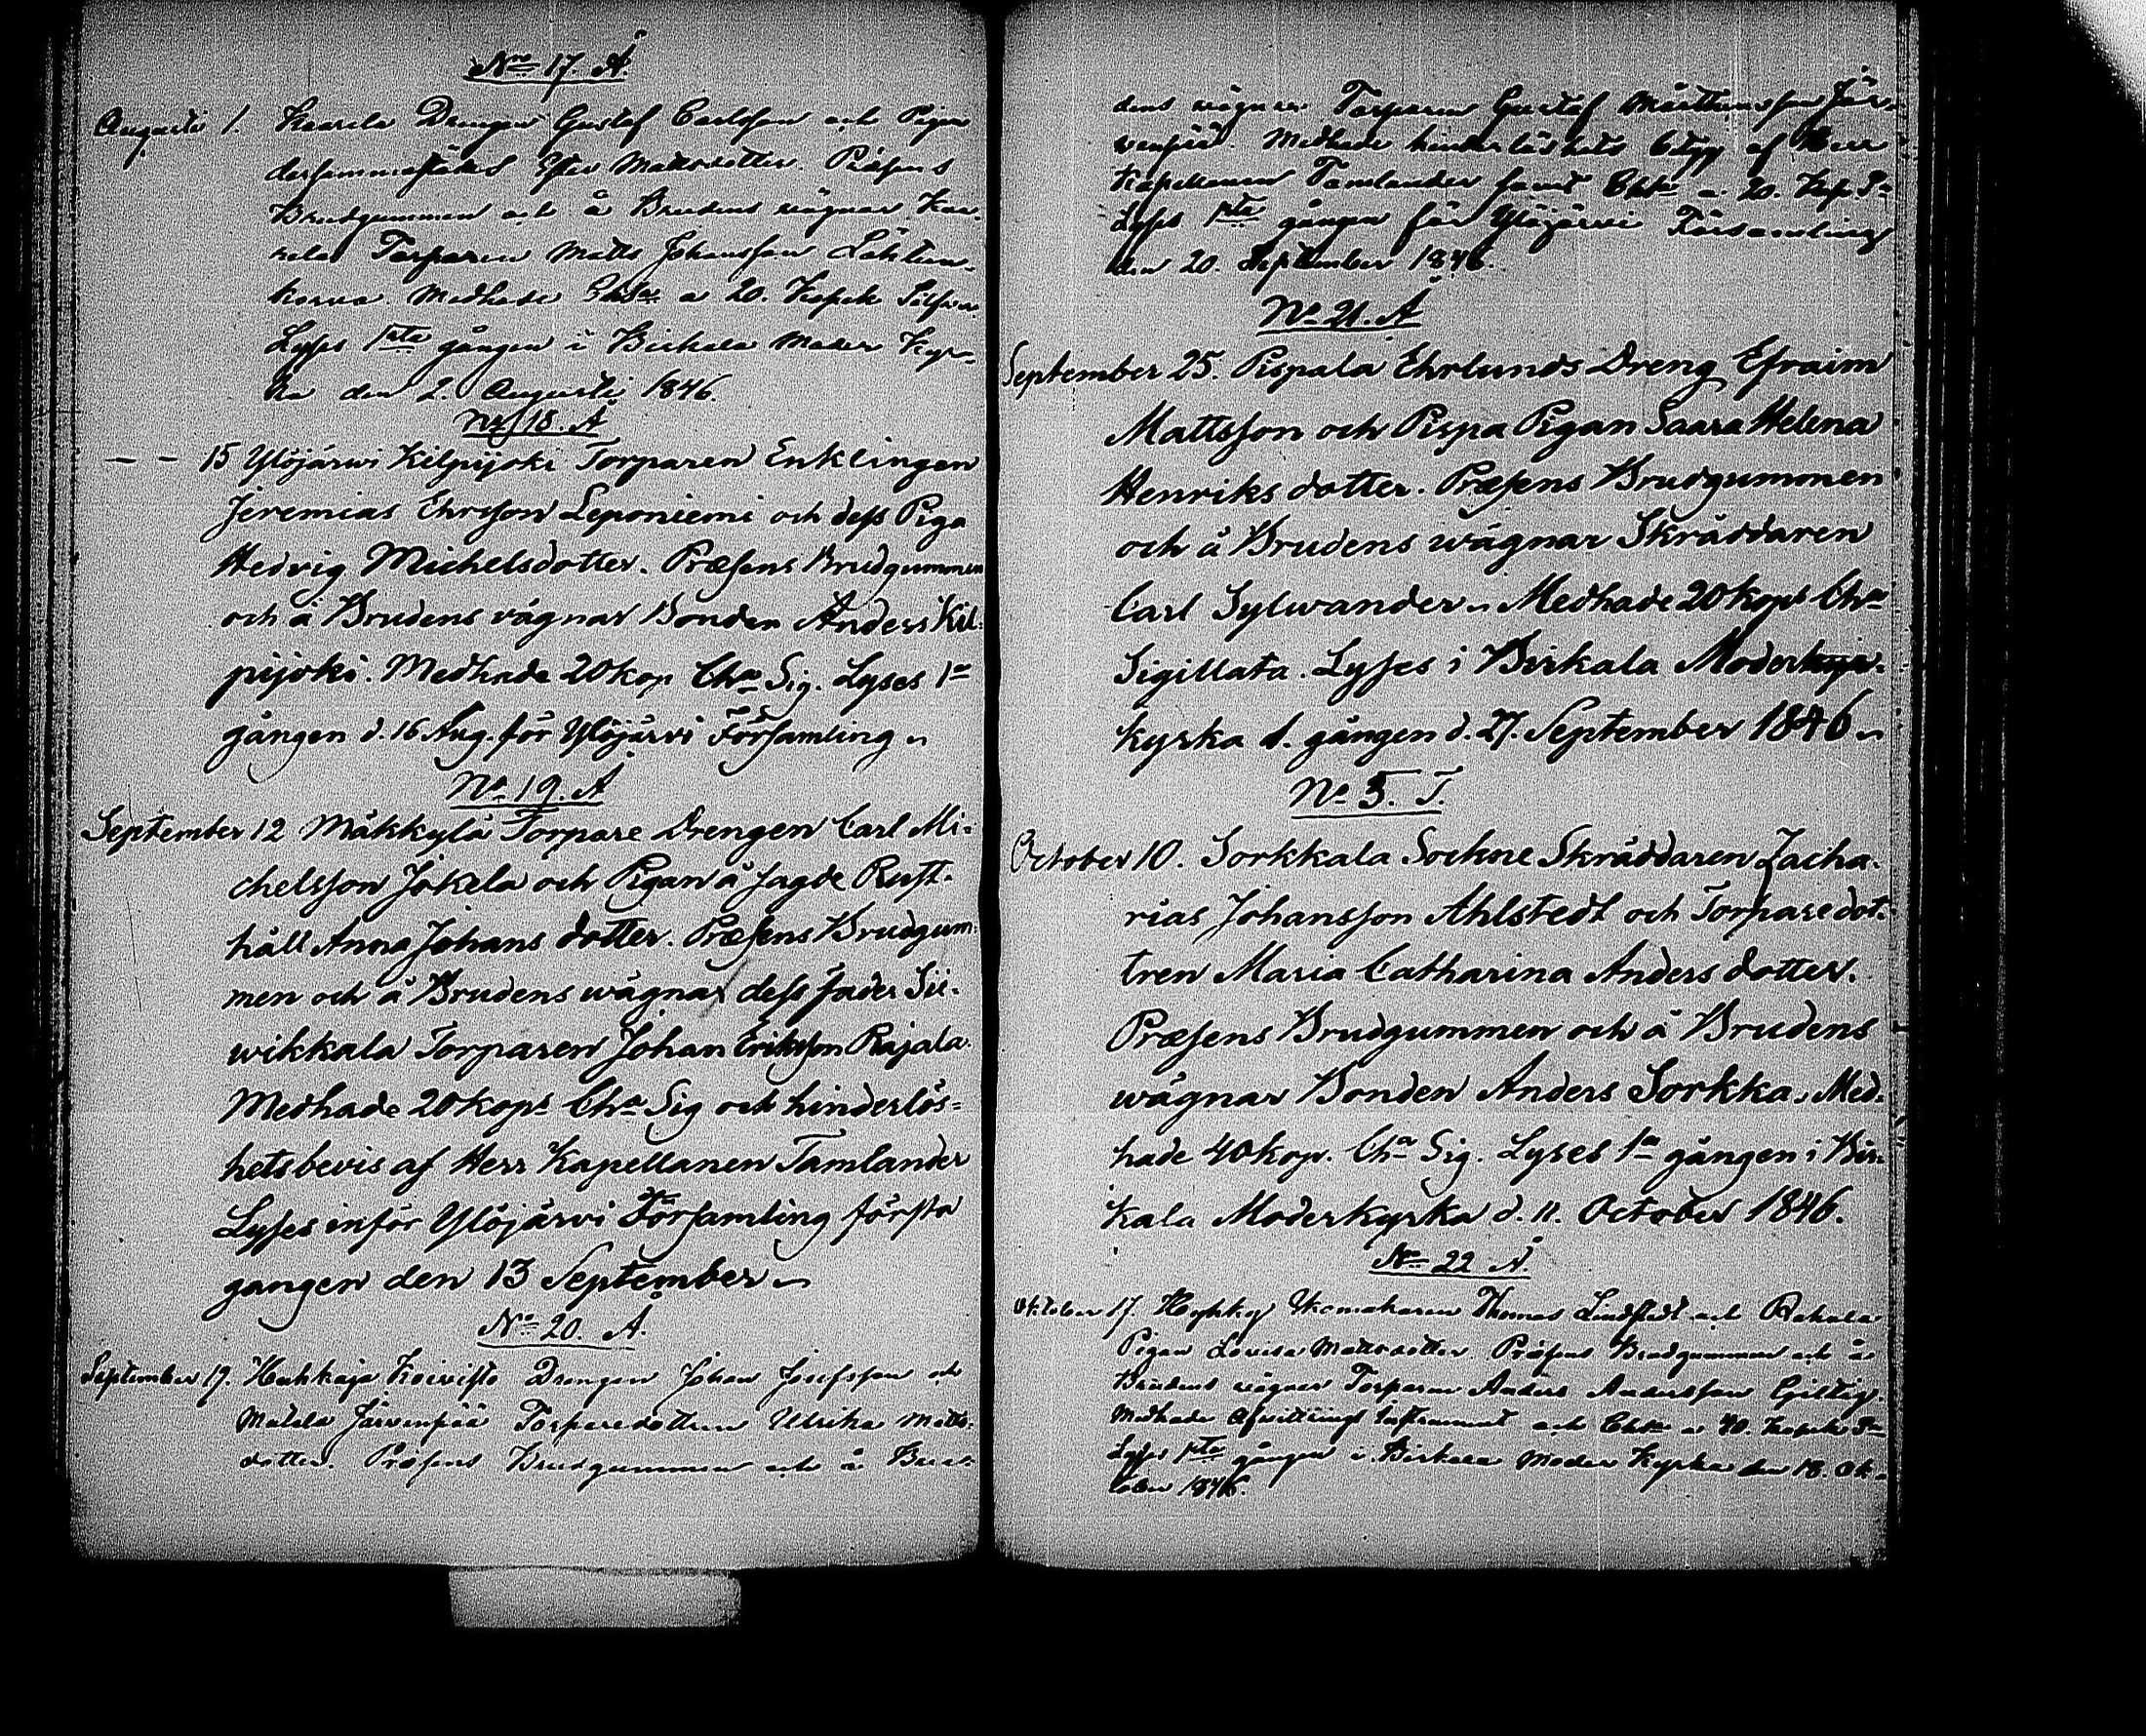 No 17. Å.
Augusti 1. Kaarila Drengen Gustaf Carlsson och Pigan
dersammastädes Efva Mattsdotter. Præsens
Brudgummen och å Brudens vägnar Kaa-
rila Torparen Matts Johansson Lähteen-
korva Medhade Chta a 20. Kopek Silfver.
Lyses 1sta gången i Birkala Moder Kyr-
ka den 2. Augusti 1846.
No 18. Å
— — 15 Ylöjärvi Kilpijoki Torparen Enklingen
Jeremias Ehrsson Leponiemi och dess Piga
Hedvig Michelsdotter. Præsens Brudgummen
och å Brudens vägnar Bonden Anders Kil-
pijoki. Medhade 20 kop Cha Sig. Lyses 1a
gången d. 16 Aug. för Ylöjärvi Församling
No 19. Å
September 12 Mäkkylä Torpare Drengen Carl Mi-
chelsson Jokela och Pigan å sagde Rust-
håll Anna Johans dotter. Præsens Brudgum-
men och å Brudens wägnar dess fader Sii-
wikkala Torparen Johan Eriksson Rajala.
Medhade 20 kops Cha Sig och hinderlös-
hetsbevis af Herr Kapellanen Tamlander
Lyses inför Ylöjärvi Församling första
gangen den 13 September
No 20. Å.
September 19. Huhkaja Koivisto Drengen Johan Josefsson och
Matela Järvenpää Torparedottern Ulrika Matts-
dotter. Præsens Brudgummen och å Bru-
dens vägnar Torparen Gustaf Mårtensson Jär-
venpää. Medhade hinderlöshets betyg af Herr
Kapellanen Tamlander samt Chta a. 20. Kop. S
Lyses 1sta gången för Ylöjärvi Församling
den 20. September 1846.
No 21. Å
September 25. Pispala Ehrlunds Dreng Efraim
Mattsson och Pispa Pigan Saara Helena
Henriks dotter. Præsens Brudgummen
och å Brudens wägnar Skräddaren
Carl Sylwander. Medhade 20 kops Cha
Sigillata. Lyses i Birkala Moderkyr-
kyrka 1. gången d. 27. September 1846
No 5. T.
October 10. Sorkkala Sockne Skräddaren Zacha-
rias Johansson Ahlstedt och Torparedot-
tren Maria Catharina Anders dotter.
Præsens Brudgummen och å Brudens
wägnar Bonden Anders Sorkka. Med-
hade 40 kop. Cha Sig. Lyses 1a gången i Bir-
kala Moderkyrka d. 11. October 1846.
No 22 Å.
Oktober 17. Hyhky Thomas Lindstedt och Rahola
Pigan Lovisa Mattsdotter. Præsens Brudgummen och å
Brudens vägnar Torparen Anders Andersson Giltig.
Medhade Afvittrings Instrument och Chta a 40. Kopek S
Lyses 1sta gången i Birkala Moder Kyrka den 18. Ok-
tober 1846.